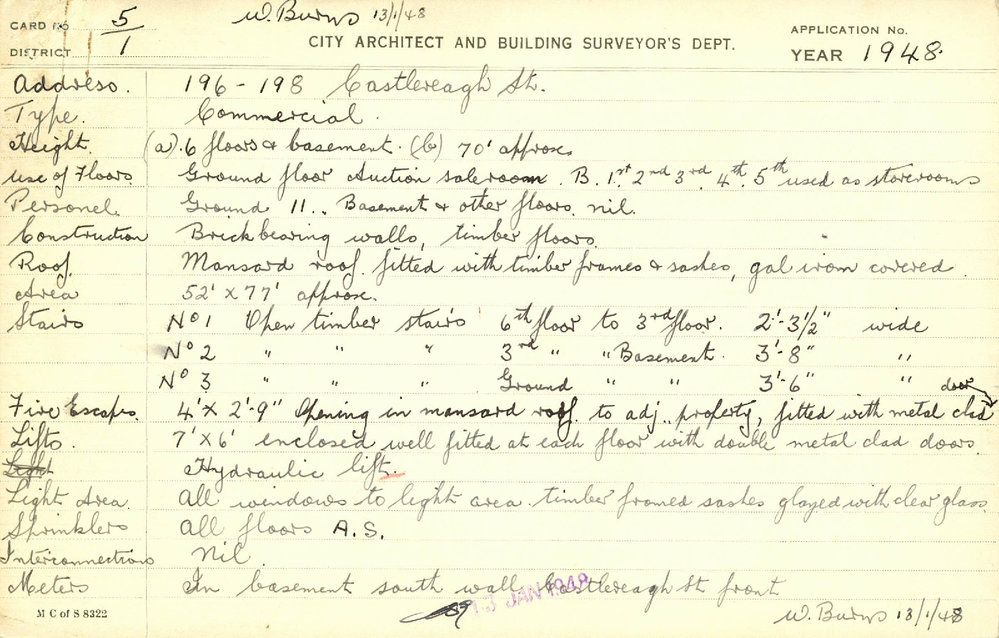 CARD No 5/1 W. Burns 13/1/48 APPLICATION No.
DISTRICT CITY ARCHITECT AND BUILDING SURVEYOR'S DEPT. YEAR 1948.
Address. 196 - 198 Castlereagh St.
Type. Commercial.
Height. (a). 6 floors & basement. (b) 70' approx.
Use of Floors. Ground floor Auction saleroom. B. 1st. 2nd 3rd. 4th. 5th used as storerooms
Personel. Ground 11.. Basement & other floors. nil.
Construction Brick bearing walls, timber floors.
Roof. Mansard roof. fitted with timber frames & sashes, gal iron covered.
Area 52' x 77' approx.
Stairs No 1 Open timber stairs 6th floor to 3rd floor. 2'-3½" wide
No 2 " " " 3rd " " Basement. 3'-8" "
No 3 " " " Ground " " 3'-6" " door
Fire Escapes. 4' x 2'-9" Opening in mansard roof. to adj.. property, fitted with metal clad
Lifts. 7' x 6' enclosed well fitted at each floor with double metal clad doors.
Light Hydraulic lift.
Light Area. All windows to light area. timber framed sashes glazed with clear glass.
Sprinklers All floors A.S.
Interconnections Nil.
Meters In basement south wall Castlereagh St front
13 JAN 1948
M C of S 8322 W. Burns 13/1/48